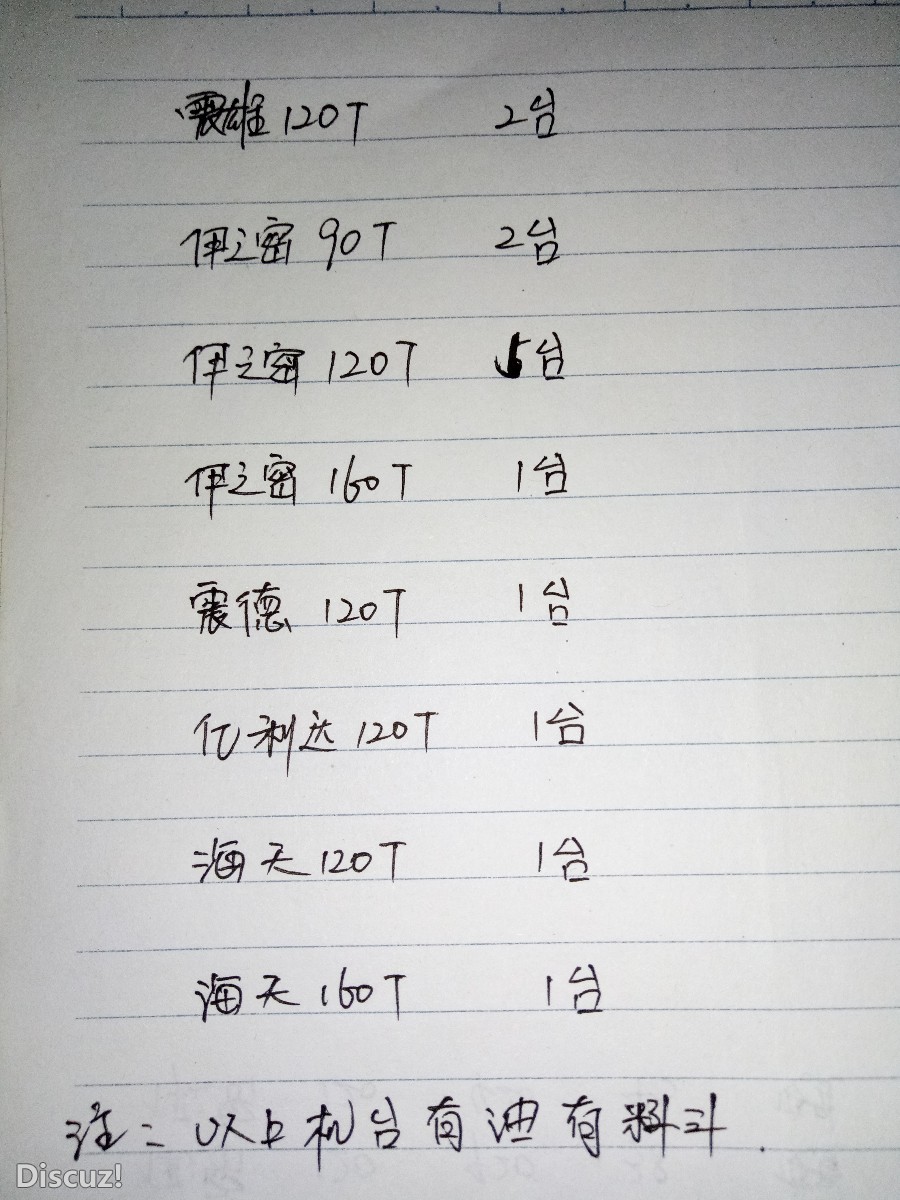 震雄 120T 2台
伊之密 90T 2台
伊之密 120T 5台
伊之密 160T 1台
震德 120T 1台
亿利达 120T 1台
海天 120T 1台
海天 160T 1台
注:以上机台有油有料斗.
Discuz!